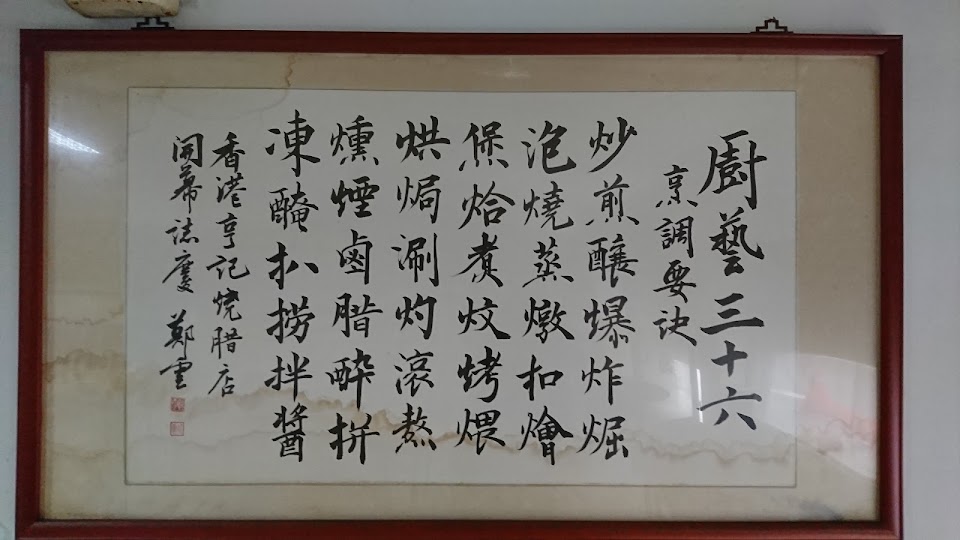 廚藝三十六
烹調要訣
炒煎釀爆炸焗
泡燒蒸燉扣燴
煲烚煮炆烤煨
烘焗涮灼滾熬
燻煙鹵腊醉拼
凍醃扒撈拌醬
香港亨記燒腊店
開幕誌慶 鄭雲